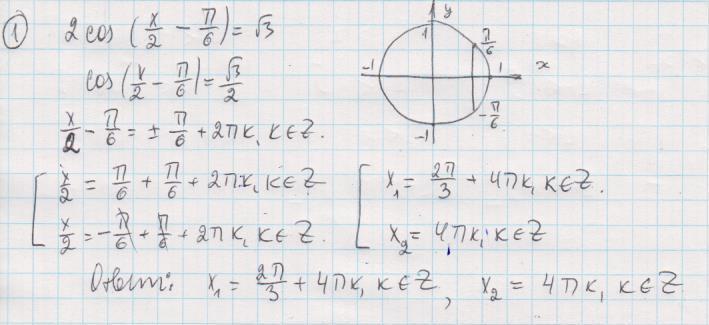 ① 2cos(x/2 − π/6) = √3
cos(x/2 − π/6) = √3/2
x/2 − π/6 = ± π/6 + 2πk, k∈Z.
[ x/2 = π/6 + π/6 + 2πk, k∈Z
x/2 = −π/6 + π/6 + 2πk, k∈Z.
[ x₁ = 2π/3 + 4πk, k∈Z.
x₂ = 4πk, k∈Z
Ответ: x₁ = 2π/3 + 4πk, k∈Z, x₂ = 4πk, k∈Z
y
1
π/6
−1
1
x
−π/6
−1